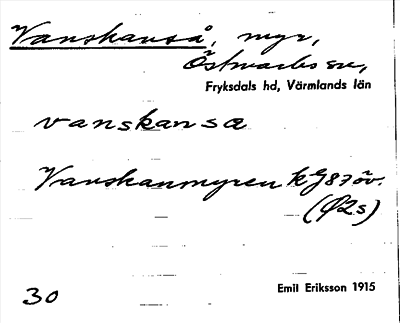 Vanskanså, myr,
Östmarks sn,
Fryksdals hd, Värmlands län
vanskansa
Vanskanmyren kG87öv.
(Ö2s)
30
Emil Eriksson 1915